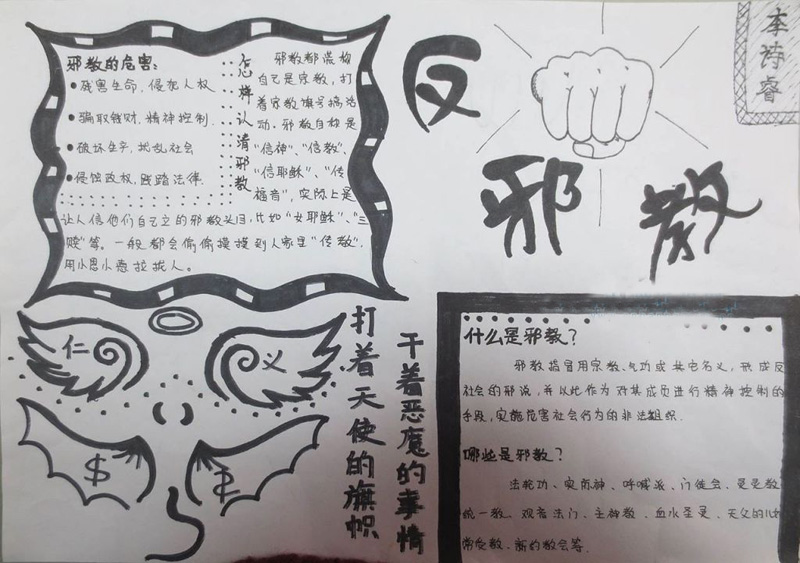 李诗睿
反
邪教
邪教的危害:
•残害生命,侵犯人权
•骗取钱财,精神控制.
•破坏生产,扰乱社会
•侵蚀政权,践踏法律.
怎样认清邪教
邪教都谎称
自己是宗教,打
着宗教旗号搞活
动.邪教自称是
"信神"、"信教"、
"信耶稣"、"传
福音",实际上是
让人信他们自己立的邪教头目,比如"女耶稣"、"三
赎"等。一般都会偷偷摸摸到人家里"传教",
用小恩小惠拉拢人。
仁
义
$
打着天使的旗帜
干着恶魔的事情
什么是邪教?
邪教指冒用宗教、气功或其它名义,形成反
社会的邪说,并以此作为对其成员进行精神控制的
手段,实施危害社会行为的非法组织.
哪些是邪教?
法轮功、实际神、呼喊派、门徒会、灵灵教
统一教、观音法门、主神教、血水圣灵、天父的儿女
常受教、新约教会等.